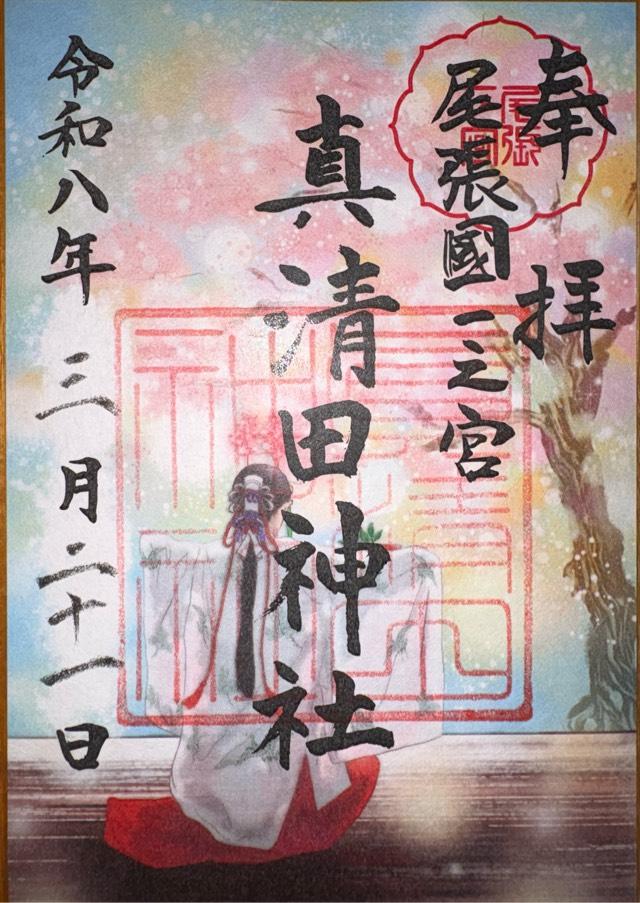 奉拝
尾張國一之宮
真清田神社
令和八年三月二十一日